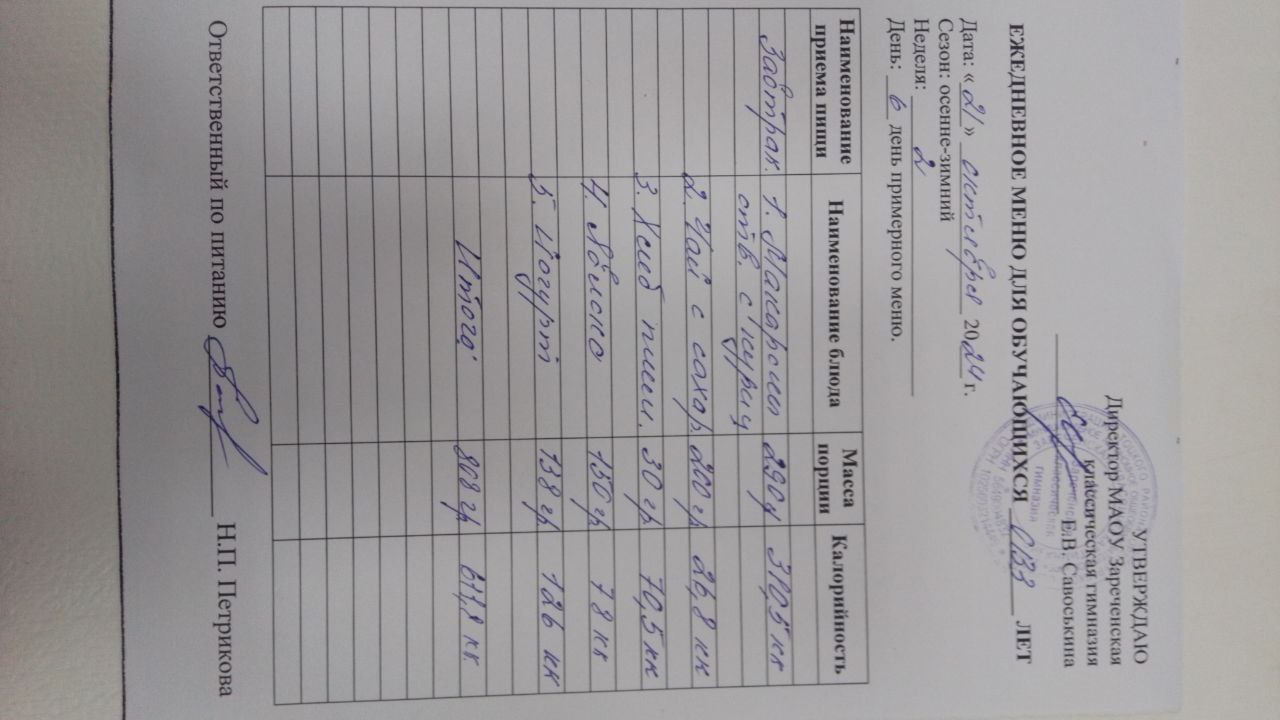 УТВЕРЖДАЮ
Директор МАОУ Зареченская
классическая гимназия
Е.В. Савоськина
ЕЖЕДНЕВНОЕ МЕНЮ ДЛЯ ОБУЧАЮЩИХСЯ ОВЗ ЛЕТ
Дата: «21» октября 2024 г.
Сезон: осенне-зимний
Неделя: 2
День: 6 день примерного меню.
Наименование приема пищи Наименование блюда Масса порции Калорийность
Завтрак. 1. Макароны 290 гр 310,5 кк
отв. с куриц
2. Чай с сахар. 200 гр 26,8 кк
3. Хлеб пшен. 30 гр 70,5 кк
4. Яблоко 150 гр 78 кк
5. Йогурт 138 гр 126 кк
Итого: 808 гр 611,8 кк.
Ответственный по питанию Н.П. Петрикова